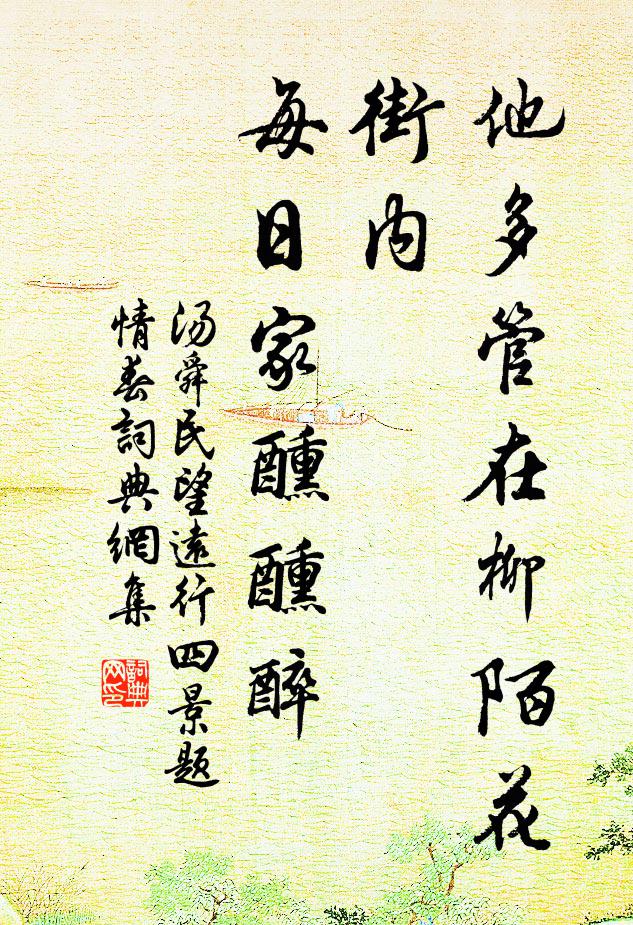 他多管在柳陌花
街内
每日家醺醺醉
汤舜民望遠行四景題
情春詞典網集
詞典网印